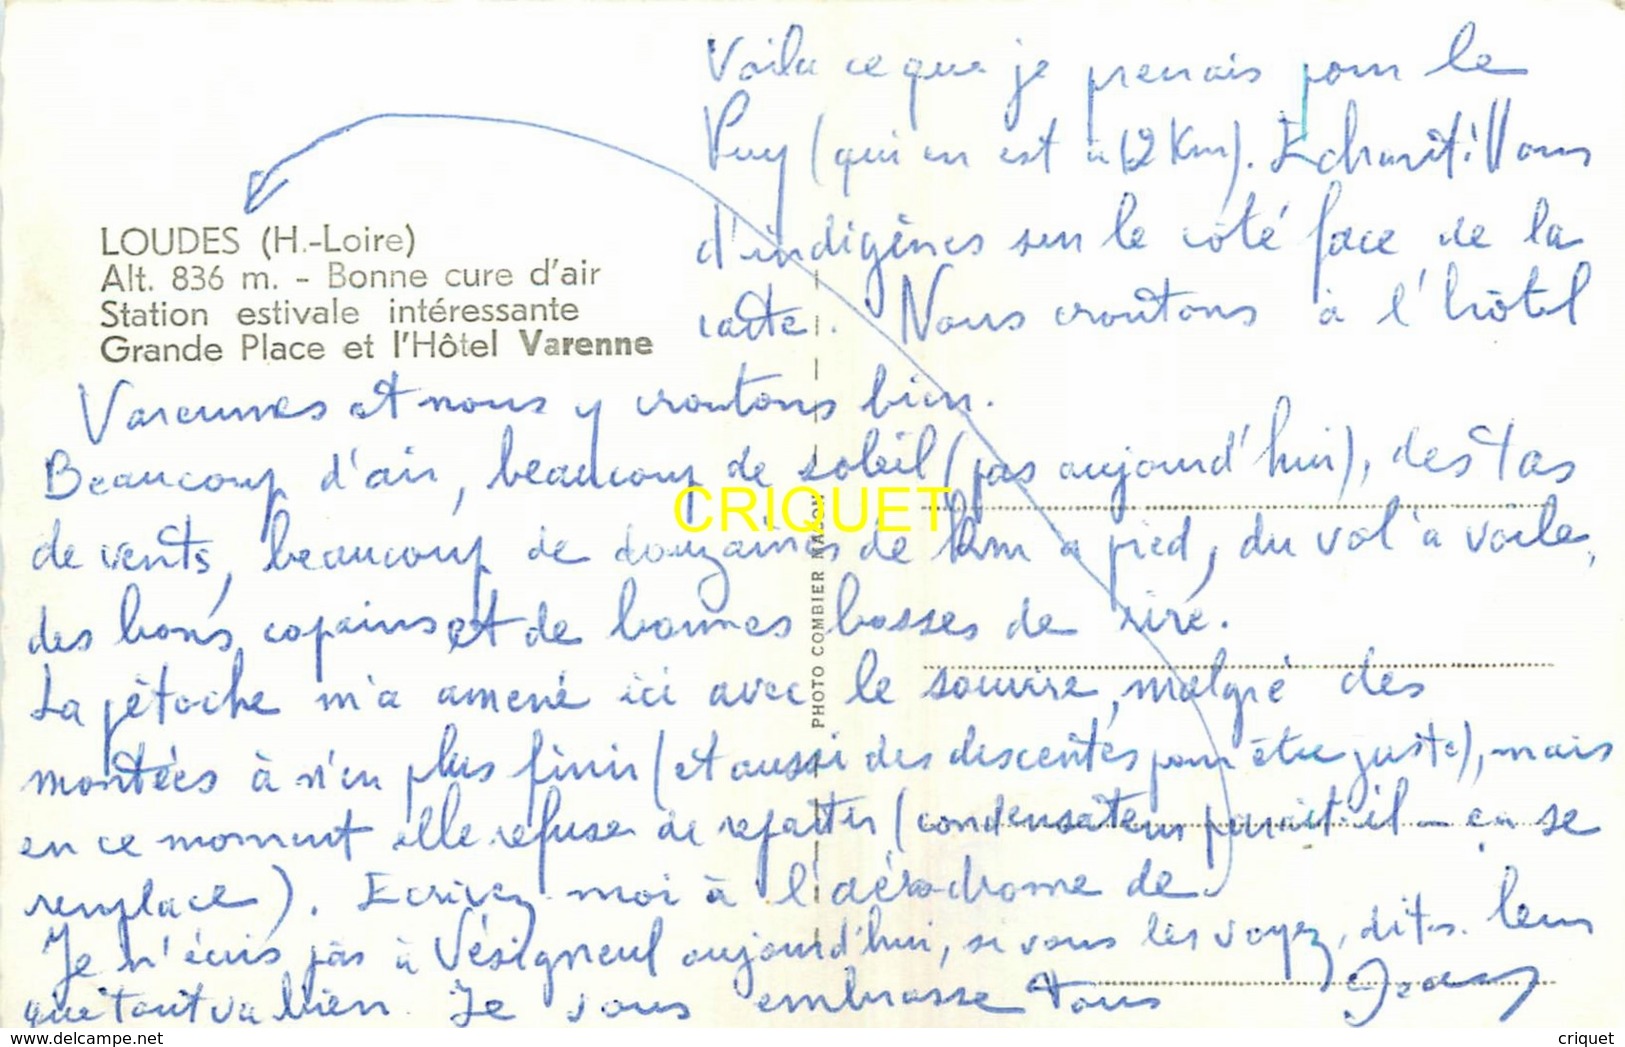 Voila ce que je prenais pour le
Puy (qui en est à 12 Km). Echantil: Vous
d'indigènes sur le côté face de la
carte. Nous croutons à l'hôtel
LOUDES (H.-Loire)
Alt. 836 m. - Bonne cure d'air
Station estivale intéressante
Grande Place et l'Hôtel Varenne
Varennes et nous y croutons bien.
Beaucoup d'air, beaucoup de soleil (pas aujourd'hui), des tas
de vents, beaucoup de douzaines de km a pied, du vol à voile,
des bons copains et de bonnes bosses de rire.
La pétoche m'a amené ici avec le sourire, malgré des
montées à n'en plus finir (et aussi des descentes pour être juste), mais
en ce moment elle refuse de repartir (condensateur parait-il - ça se
remplace). Ecrivez moi à l'aérodrome de
Je n'écris pas à Vésigneul aujourd'hui, si vous les voyez, dites leur
que tout va bien. Je vous embrasse tous
PHOTO COMBIER MACON
CRIQUET
delcampe.net
criquet